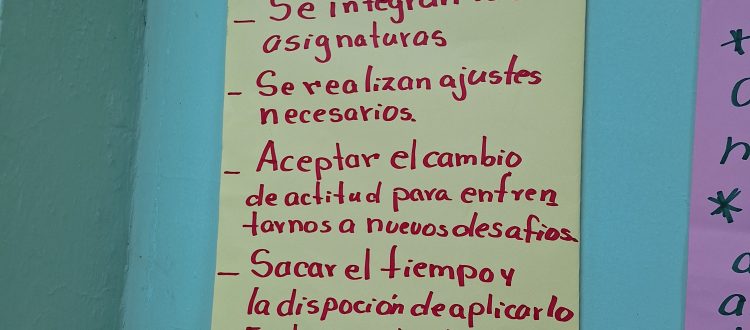 - Se integran
asignaturas
- Se realizan ajustes
necesarios.
- Aceptar el cambio
de actitud para enfren
tarnos a nuevos desafios
- Sacar el tiempo y
la dispoción de aplicarlo
*
*
a